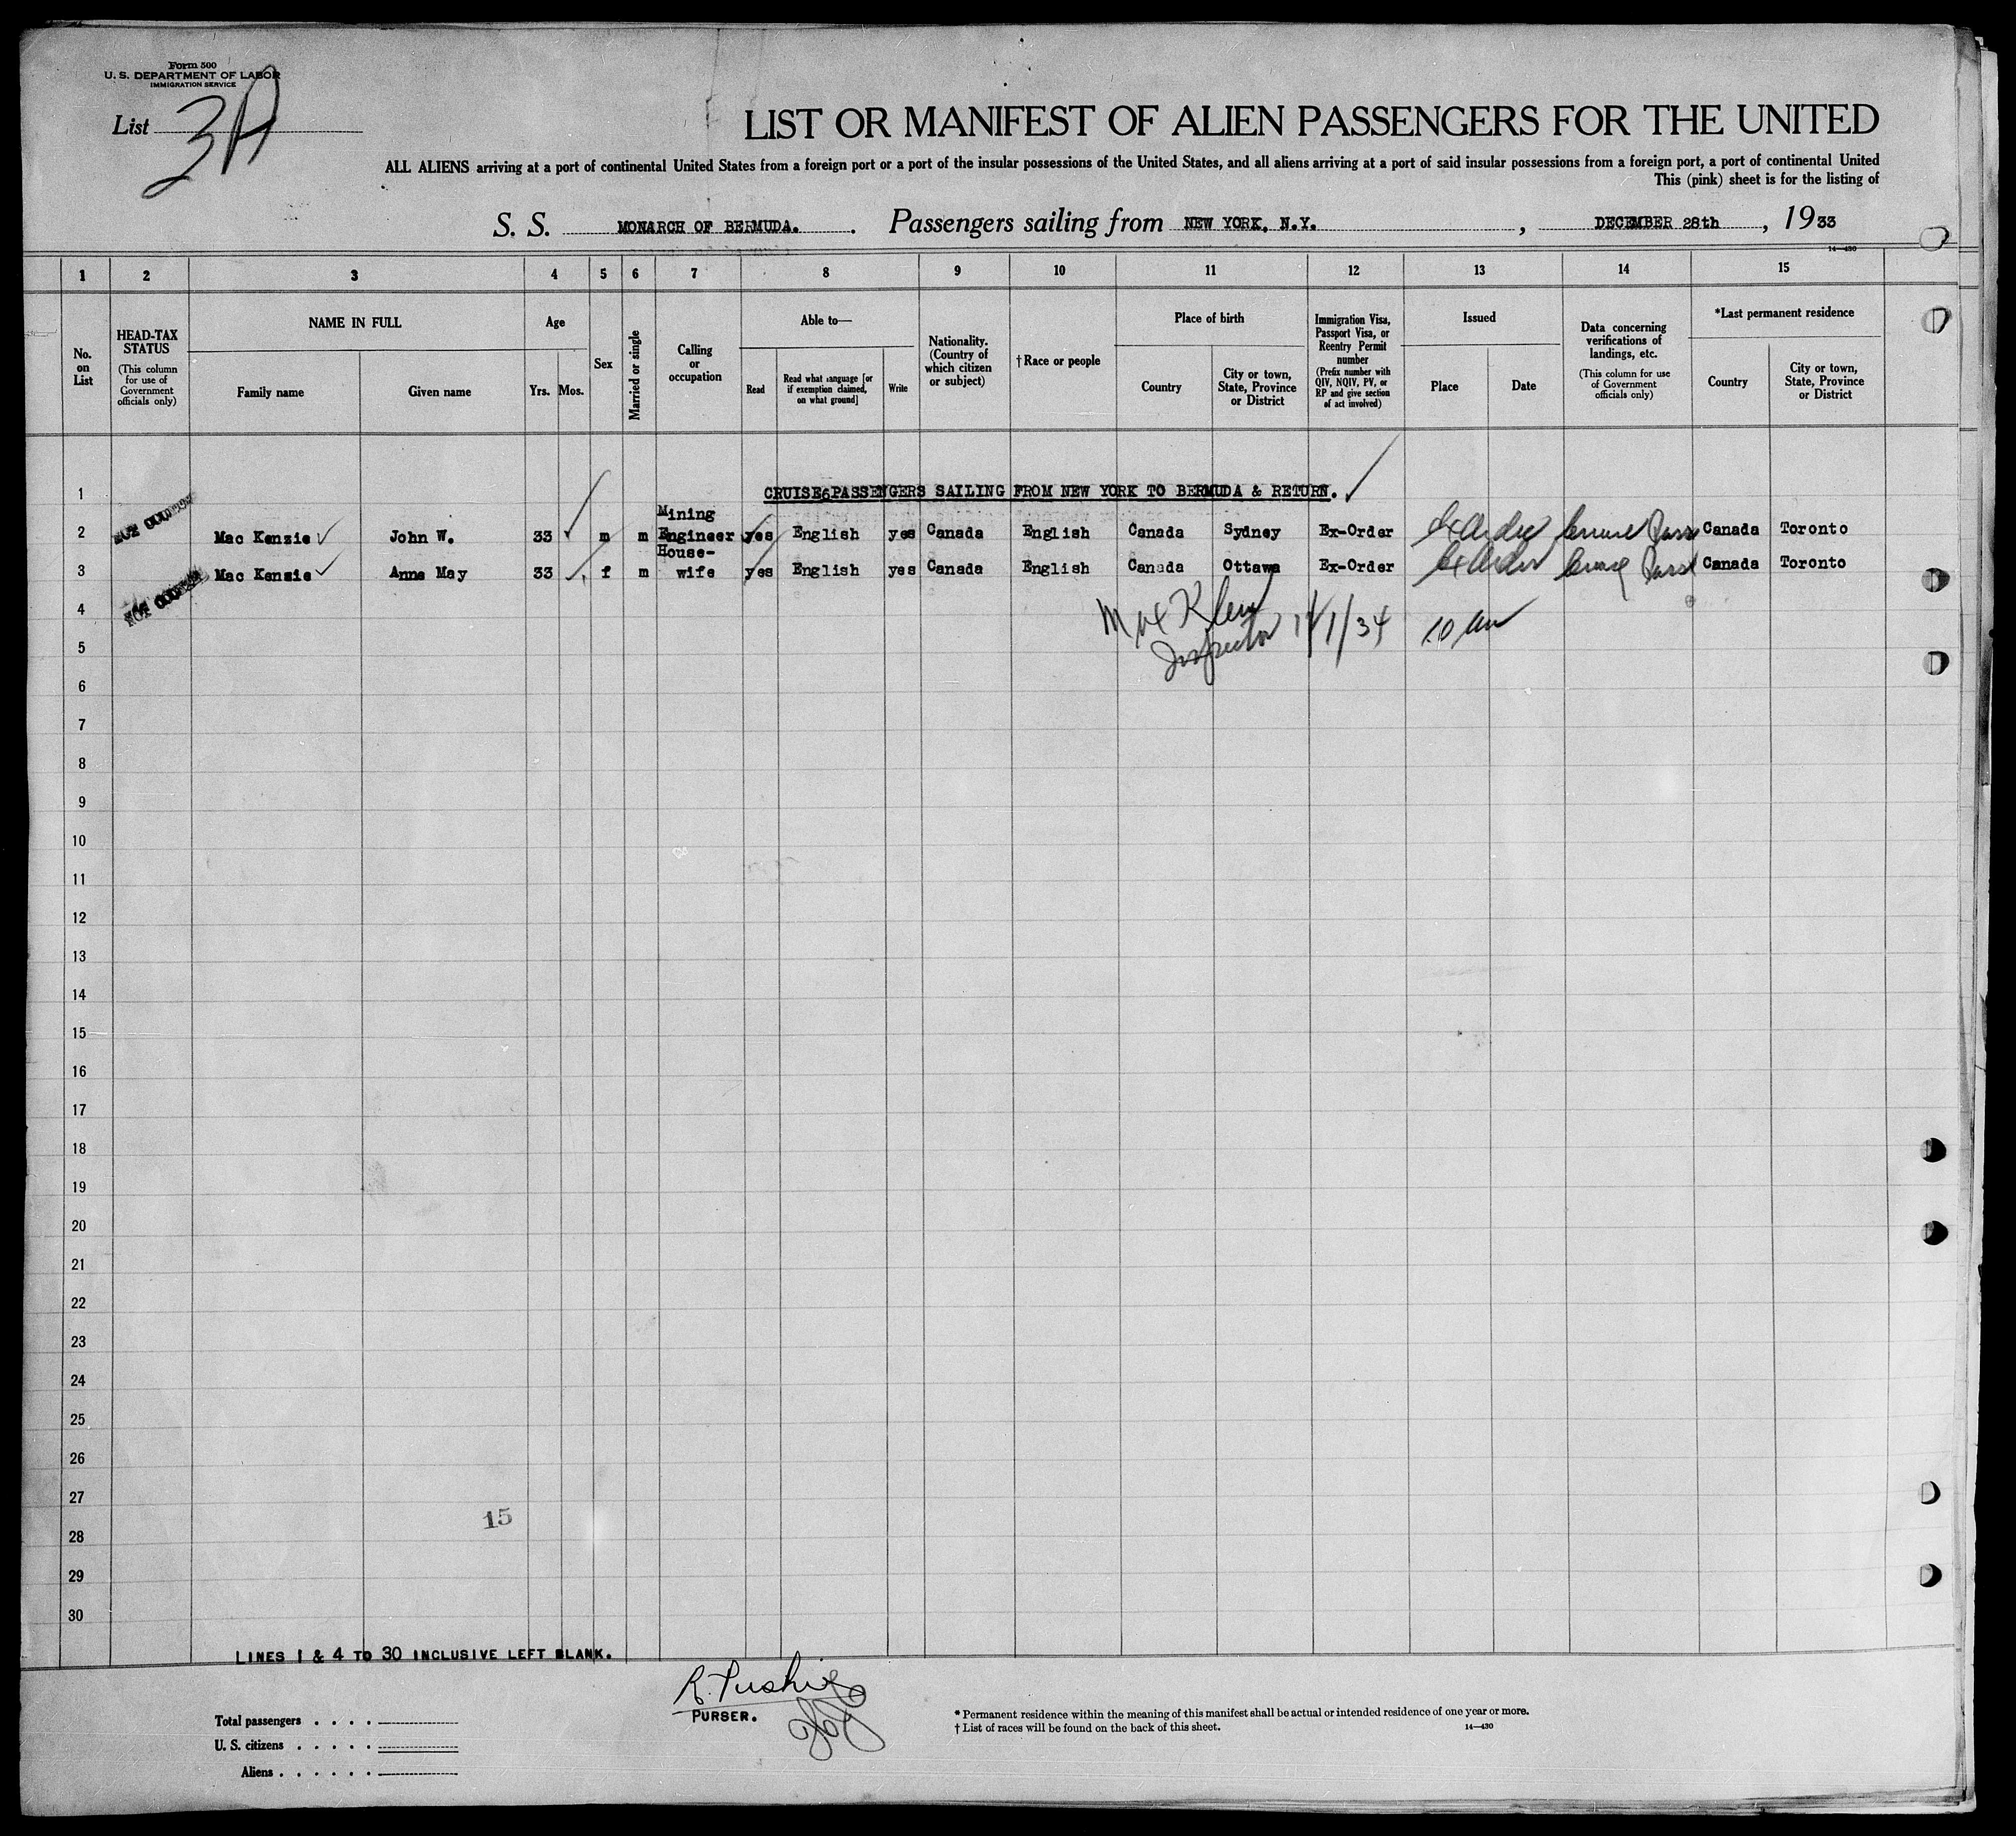 Form 500
U. S. DEPARTMENT OF LABOR
IMMIGRATION SERVICE
List 3A
LIST OR MANIFEST OF ALIEN PASSENGERS FOR THE UNITED
ALL ALIENS arriving at a port of continental United States from a foreign port or a port of the insular possessions of the United States, and all aliens arriving at a port of said insular possessions from a foreign port, a port of continental United
This (pink) sheet is for the listing of
S. S. MONARCH OF BERMUDA. Passengers sailing from NEW YORK, N.Y., DECEMBER 28th, 1933
14—430
1 2 3 4 5 6 7 8 9 10 11 12 13 14 15
No. on List
HEAD-TAX STATUS (This column for use of Government officials only)
NAME IN FULL
Family name Given name
Age
Yrs. Mos.
Sex
Married or single
Calling or occupation
Able to—
Read Read what language [or if exemption claimed, on what ground] Write
Nationality. (Country of which citizen or subject)
†Race or people
Place of birth
Country City or town, State, Province or District
Immigration Visa, Passport Visa, or Reentry Permit number (Prefix number with QIV, NQIV, PV, or RP and give section of act involved)
Issued
Place Date
Data concerning verifications of landings, etc. (This column for use of Government officials only)
*Last permanent residence
Country City or town, State, Province or District
1 CRUISE PASSENGERS SAILING FROM NEW YORK TO BERMUDA & RETURN.
2 Mac Kenzie John W. 33 m m Mining Engineer yes English yes Canada English Canada Sydney Ex-Order Ex Order Cruise Pass Canada Toronto
3 Mac Kenzie Anne May 33 f m House-wife yes English yes Canada English Canada Ottawa Ex-Order Ex Order Cruise Pass Canada Toronto
4
Max Klein
Inspector 1/1/34 10 am
5
6
7
8
9
10
11
12
13
14
15
16
17
18
19
20
21
22
23
24
25
26
27
15
28
29
30
LINES 1 & 4 TO 30 INCLUSIVE LEFT BLANK.
PURSER.
Total passengers . . . .
U. S. citizens . . . . .
Aliens . . . . . .
* Permanent residence within the meaning of this manifest shall be actual or intended residence of one year or more.
† List of races will be found on the back of this sheet. 14—430